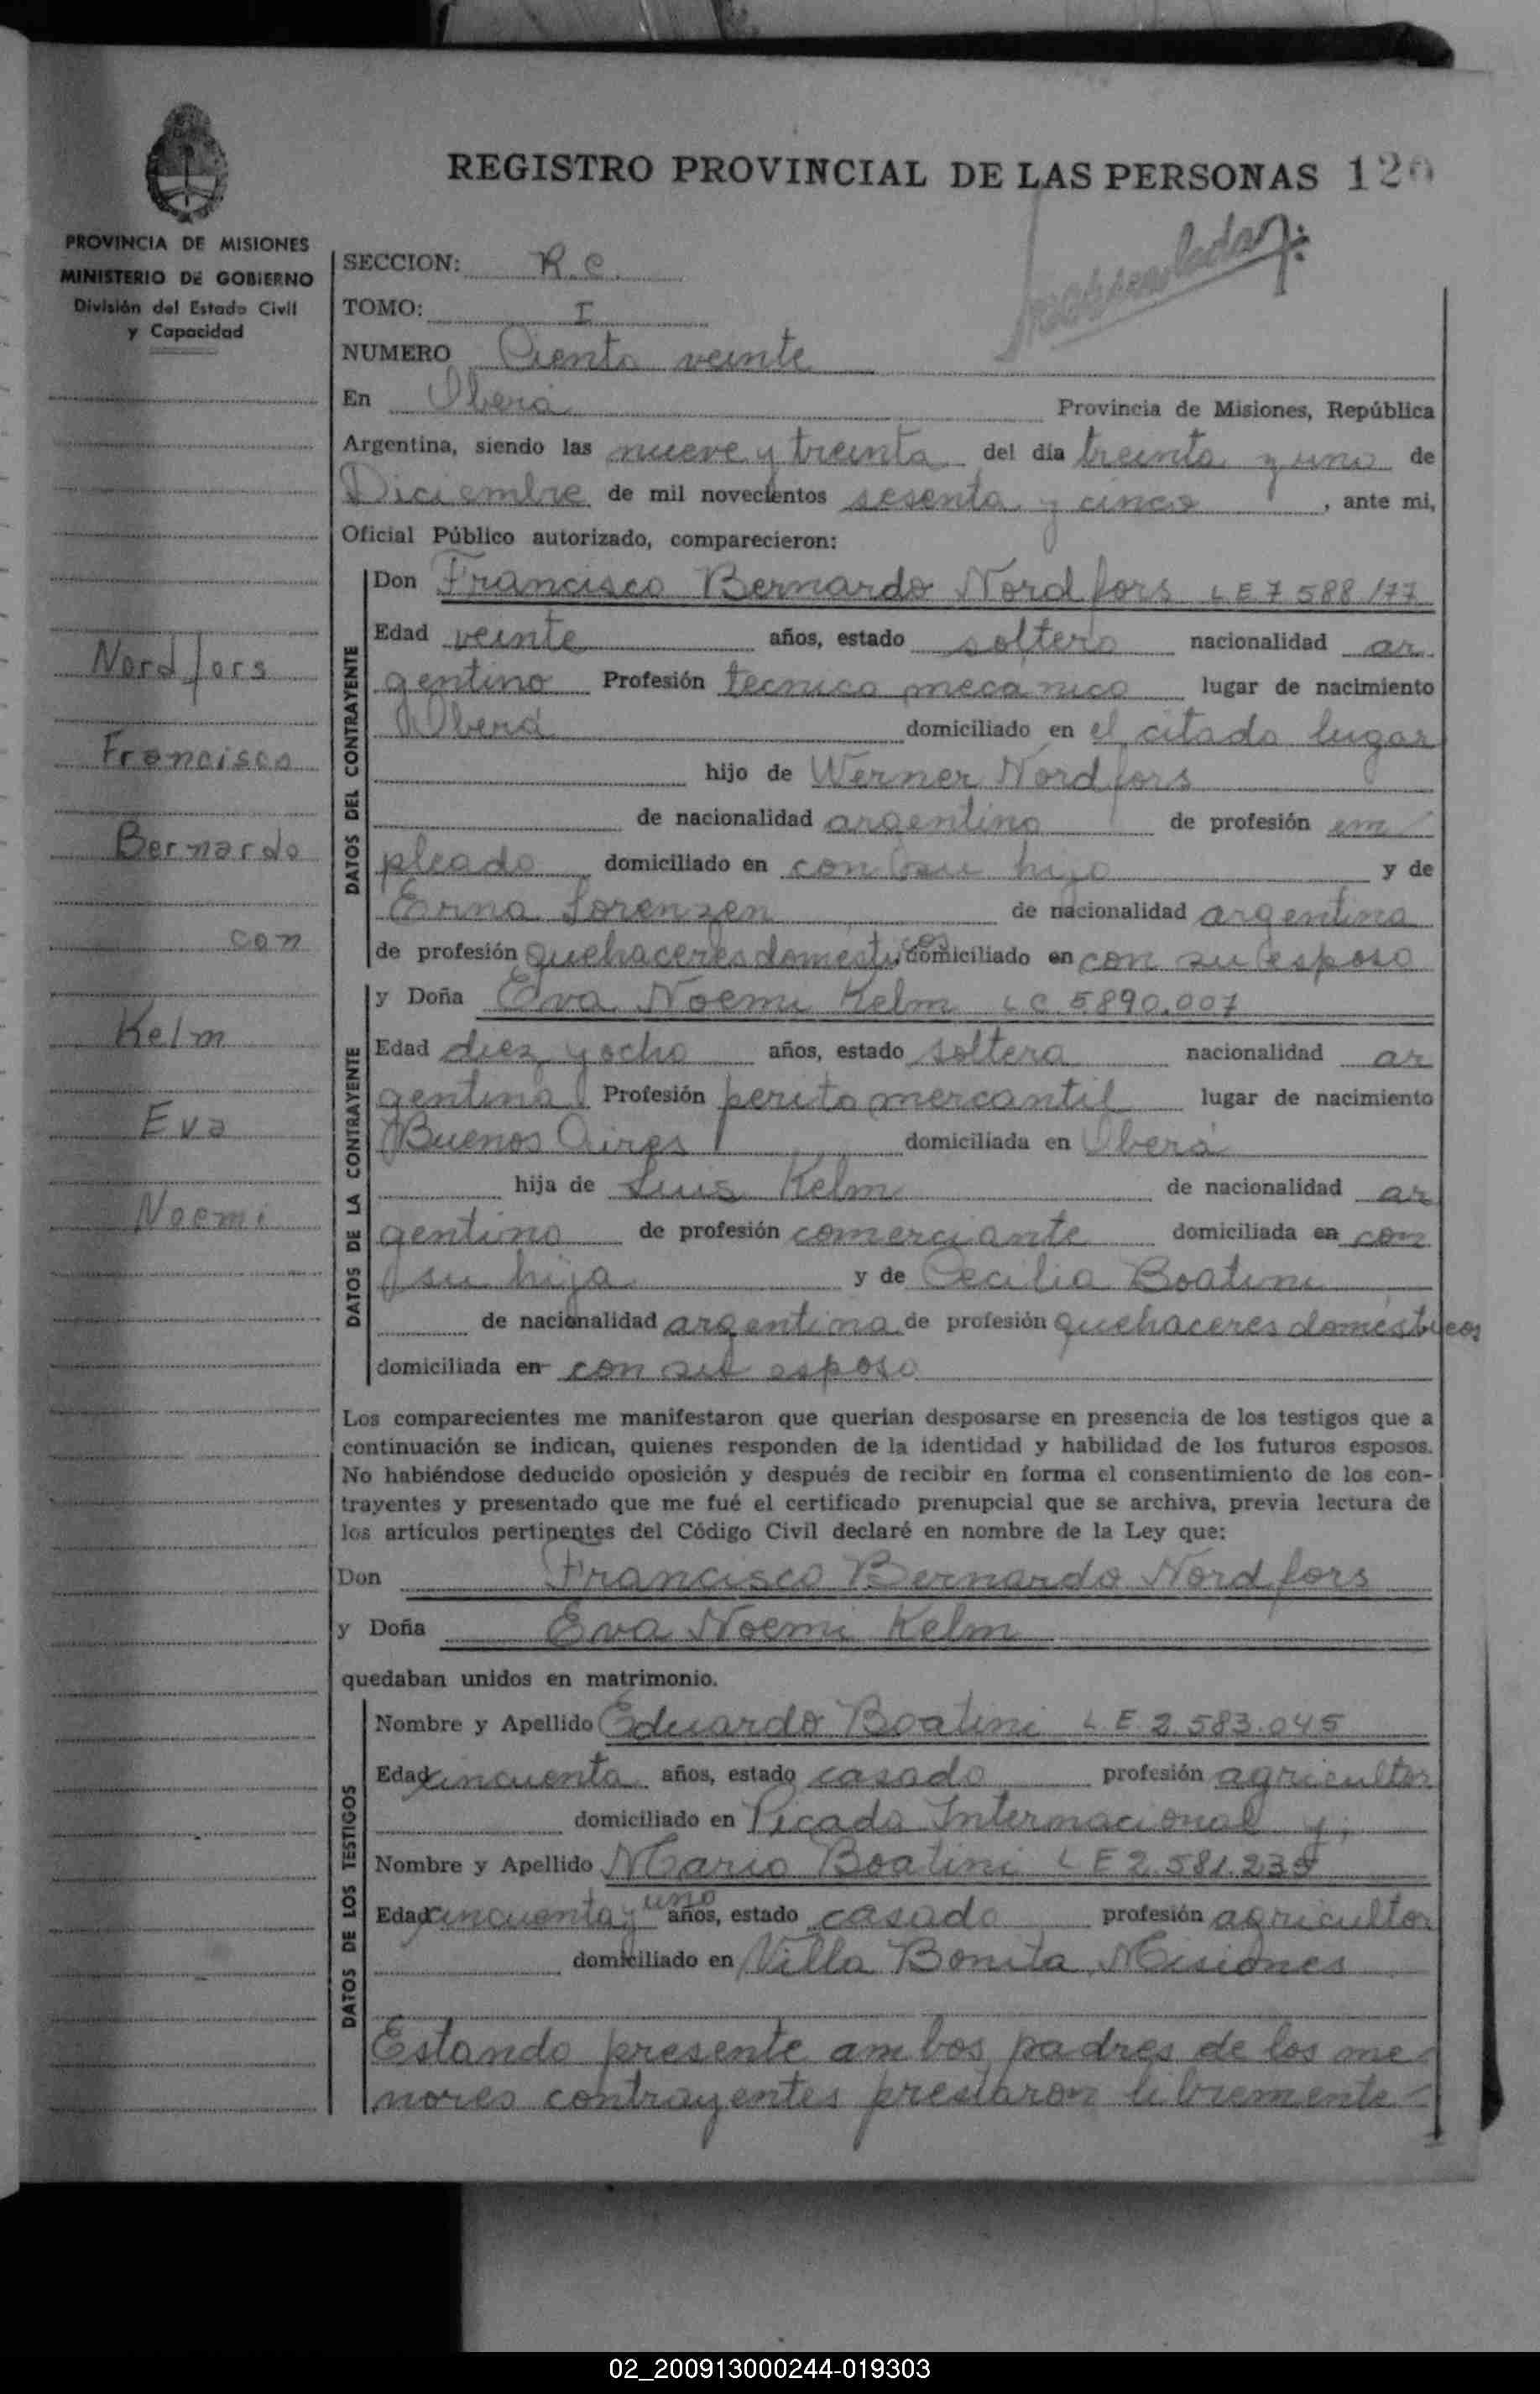 REGISTRO PROVINCIAL DE LAS PERSONAS 120
PROVINCIA DE MISIONES
MINISTERIO DE GOBIERNO
División del Estado Civil
y Capacidad
SECCION: R. C.
TOMO: I
NUMERO Ciento veinte
En Oberá Provincia de Misiones, República
Argentina, siendo las nueve y treinta del día treinta y uno de
Diciembre de mil novecientos sesenta y cinco, ante mi,
Oficial Público autorizado, comparecieron:
DATOS DEL CONTRAYENTE
Don Francisco Bernardo Nordfors L E 7 588 177
Edad veinte años, estado soltero nacionalidad ar
gentino Profesión tecnico mecanico lugar de nacimiento
Oberá domiciliado en el citado lugar
hijo de Werner Nordfors
de nacionalidad argentino de profesión em
pleado domiciliado en con su hijo y de
Erna Lorenzen de nacionalidad argentina
de profesión quehaceres domesticos domiciliado en con su esposo
Nordfors
Francisco
Bernardo
con
Kelm
Eva
Noemi
DATOS DE LA CONTRAYENTE
y Doña Eva Noemi Kelm L C 5.890.007
Edad diez y ocho años, estado soltera nacionalidad ar
gentina Profesión perito mercantil lugar de nacimiento
Buenos Aires domiciliada en Oberá
hija de Luis Kelm de nacionalidad ar
gentino de profesión comerciante domiciliada en con
su hija y de Cecilia Boatini
de nacionalidad argentina de profesión quehaceres domésticos
domiciliada en con su esposo
Los comparecientes me manifestaron que querían desposarse en presencia de los testigos que a
continuación se indican, quienes responden de la identidad y habilidad de los futuros esposos.
No habiéndose deducido oposición y después de recibir en forma el consentimiento de los con-
trayentes y presentado que me fué el certificado prenupcial que se archiva, previa lectura de
los artículos pertinentes del Código Civil declaré en nombre de la Ley que:
Don Francisco Bernardo Nordfors
y Doña Eva Noemi Kelm
quedaban unidos en matrimonio.
DATOS DE LOS TESTIGOS
Nombre y Apellido Eduardo Boatini L. E. 2.583.045
Edad cincuenta años, estado casado profesión agricultor
domiciliado en Picada Internacional y
Nombre y Apellido Mario Boatini L E 2.581.235
Edad cincuenta y uno años, estado casado profesión agricultor
domiciliado en Villa Bonita Misiones
Estando presente ambos padres de los me-
nores contrayentes prestaron libremente-
02_200913000244-019303